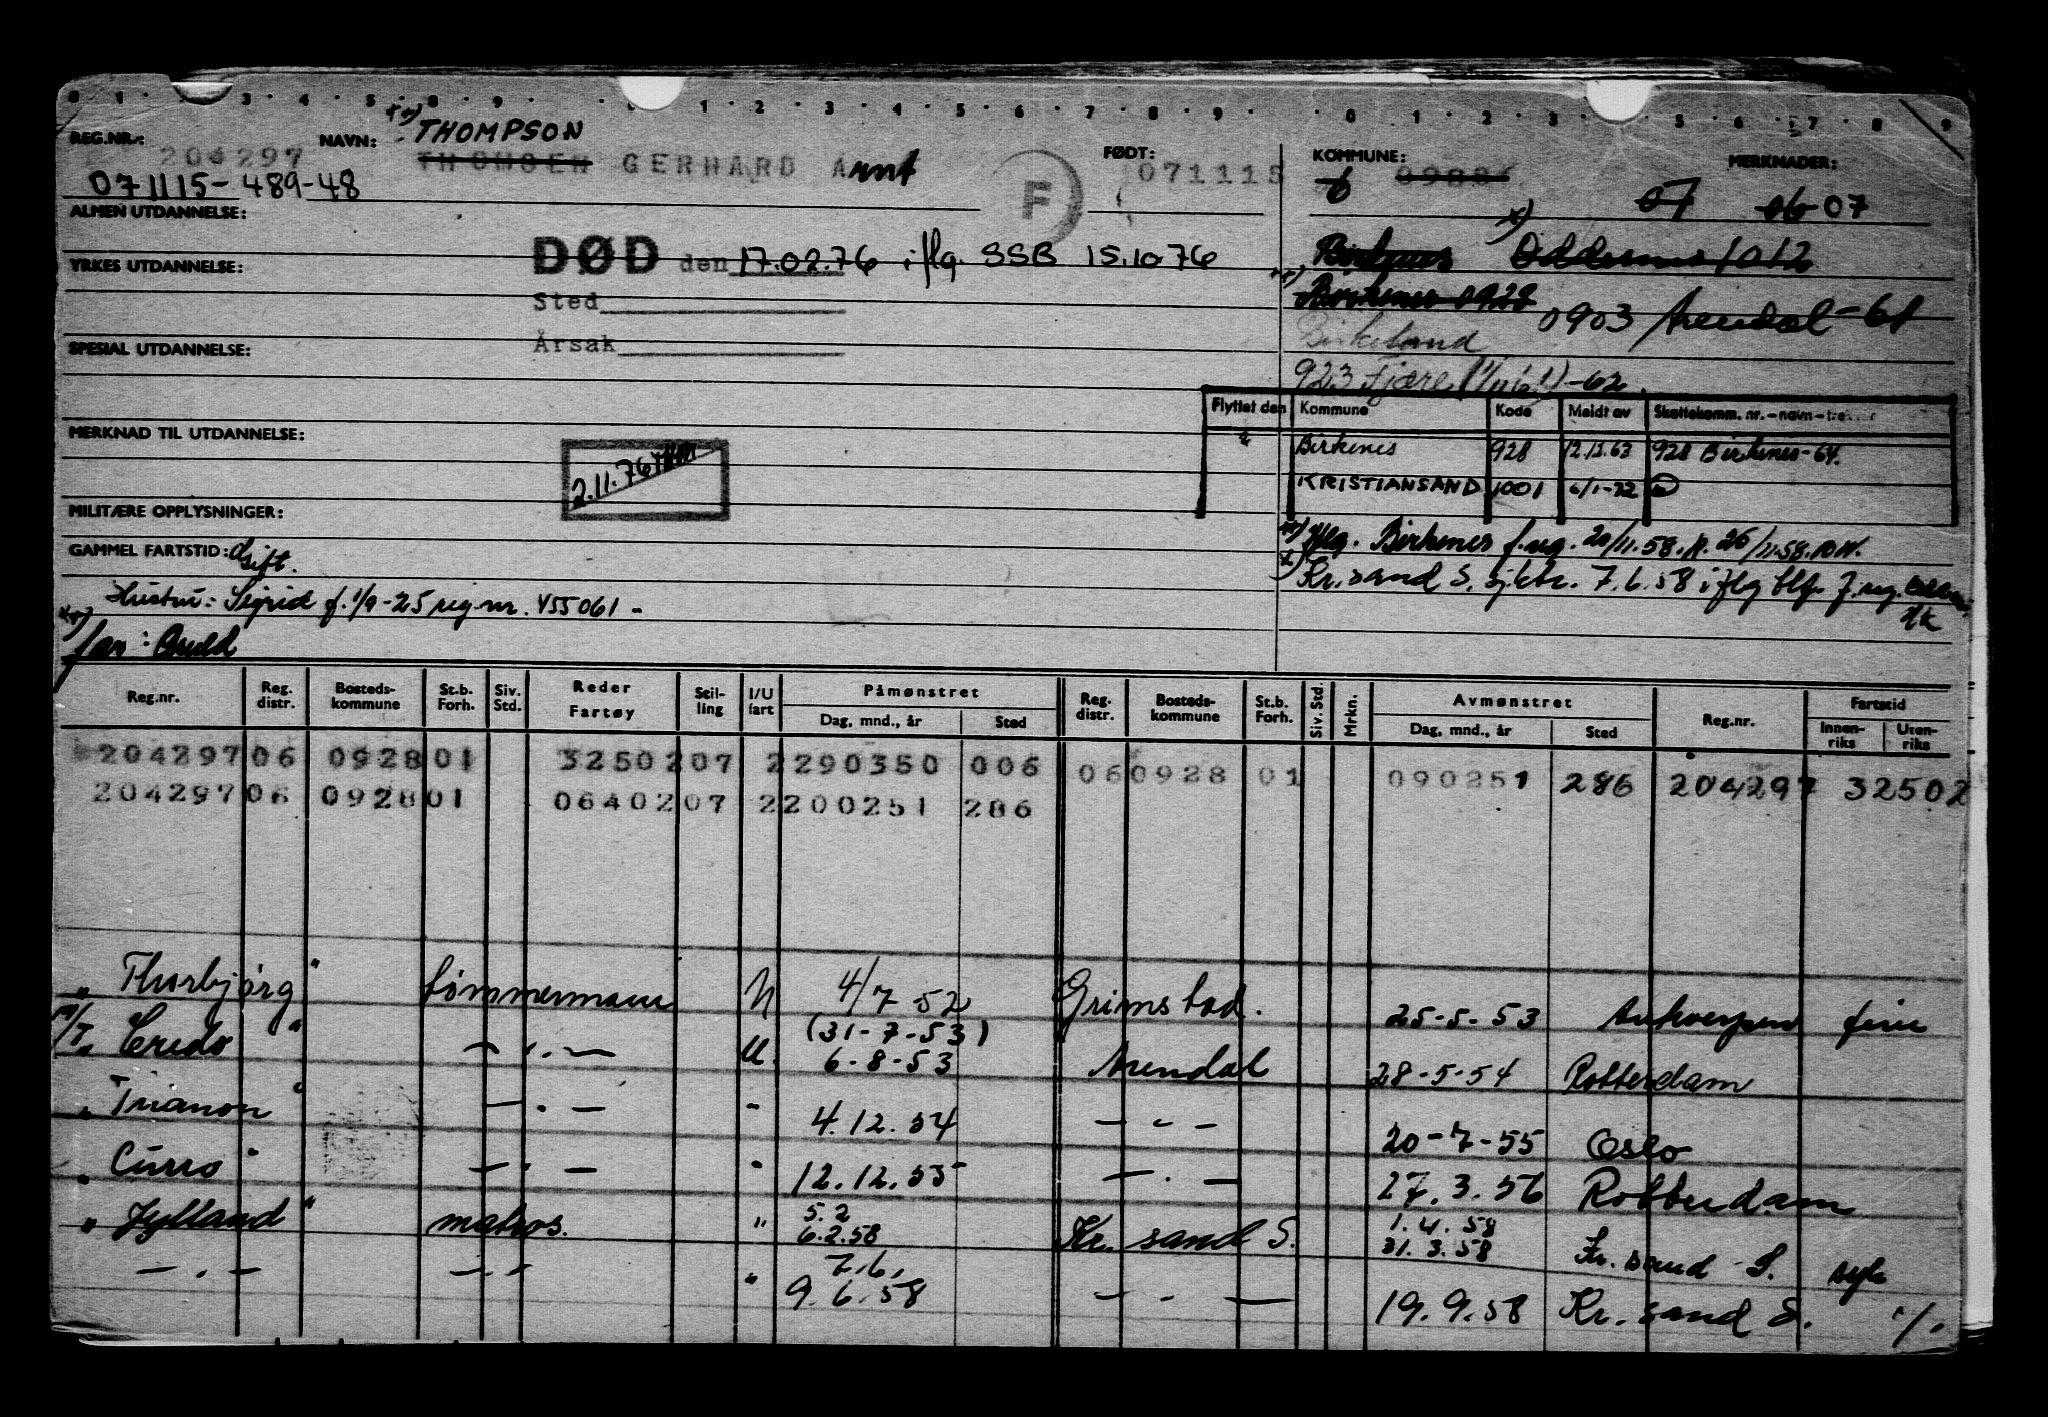 0 1 3 4 5 8 9 1 2 3 4 5 6 7 8 9 0 1 2 3 5 6 7 8 9
REG.NR.: NAVN: xx) THOMPSON FØDT: KOMMUNE: MERKNADER:
204297 THOMSEN GERHARD Arnt F 071115 6 0986
071115-489-48 07 06 07
ALMEN UTDANNELSE:
x)
DØD den 17.02.76 iflg. SSB 15.10 76 Birkenes Oddernes 1012
YRKES UTDANNELSE:
Sted xx) Birkenes 0928 0903 Arendal - 61
Årsak Birkeland
SPESIAL UTDANNELSE:
923 Fjære -62.
Flyttet den Kommune Kode Meldt av Skattekomm. nr. - navn -
MERKNAD TIL UTDANNELSE:
Birkenes 928 12.12.63 928 Birkenes-64.
2.11.76 KRISTIANSAND 1001 6/1-72
MILITÆRE OPPLYSNINGER:
xx) Iflg. Birkenes f.reg. 20/11.58. 26/11.58.
GAMMEL FARTSTID: Gift.
x) Kr.sand S. sjktr. 7.6.58 iflg blf. f.reg.
Hustru: Sigrid f. 1/9-25 reg nr. 455061 -
xx) far: Arvid
Reg.nr. Reg. distr. Bosteds-kommune St.b. Forh. Siv. Std. Reder Fartøy Stil-ling I/U fart Påmønstret Reg. distr. Bosteds-kommune St.b. Forh. Siv. Std. Mrkn. Avmønstret Reg.nr. Fartstid
Dag, mnd., år Sted Dag, mnd., år Sted Innen-riks Uten-riks
204297 06 0928 01 32502 07 2 290350 006 06 0928 01 090251 286 204297 32502
204297 06 0928 01 06402 07 2 200251 286
" Thorbjørg " tømmermann U 4/7 52 Grimstad. 25-5-53 Antwerpen ferie
(31-7-53)
M/T " Credo " - " - U. 6-8-53 Arendal 28-5-54 Rotterdam
" Trianon " - " - " 4.12.54 - " - 20-7-55 Oslo
" Curro " - " - " 12.12.55 - " - 27.3.56 Rotterdam
5.2 1.4.58
" Jylland " matros. " 6.2.58 Kr. sand S. 31.3.58 Kr. sand S. syk
7.6.
- " - - " - " 9.6.58 - " - 19.9.58 Kr. sand S. ./.